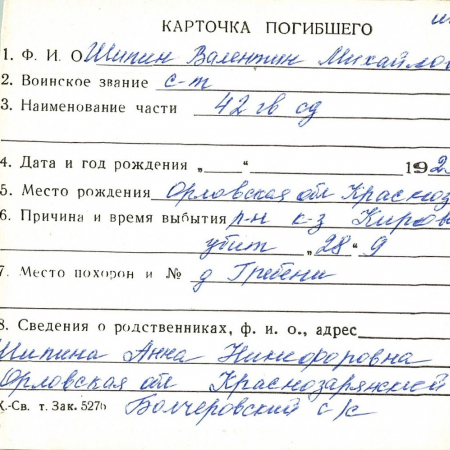 КАРТОЧКА ПОГИБШЕГО
1. Ф. И. О Шипин Валентин Михайлов
2. Воинское звание с-т
3. Наименование части 42 гв сд
4. Дата и год рождения „ “ 192
5. Место рождения Орловская обл Красноз
6. Причина и время выбытия р-н к-з Киров
убит „28“ 9
7. Место похорон и № д Гребени
8. Сведения о родственниках, ф. и. о., адрес
Шипина Анна Никифоровна
Орловская обл Краснозарянский
К.-Св. т. Зак. 527 Болчеровский с/с